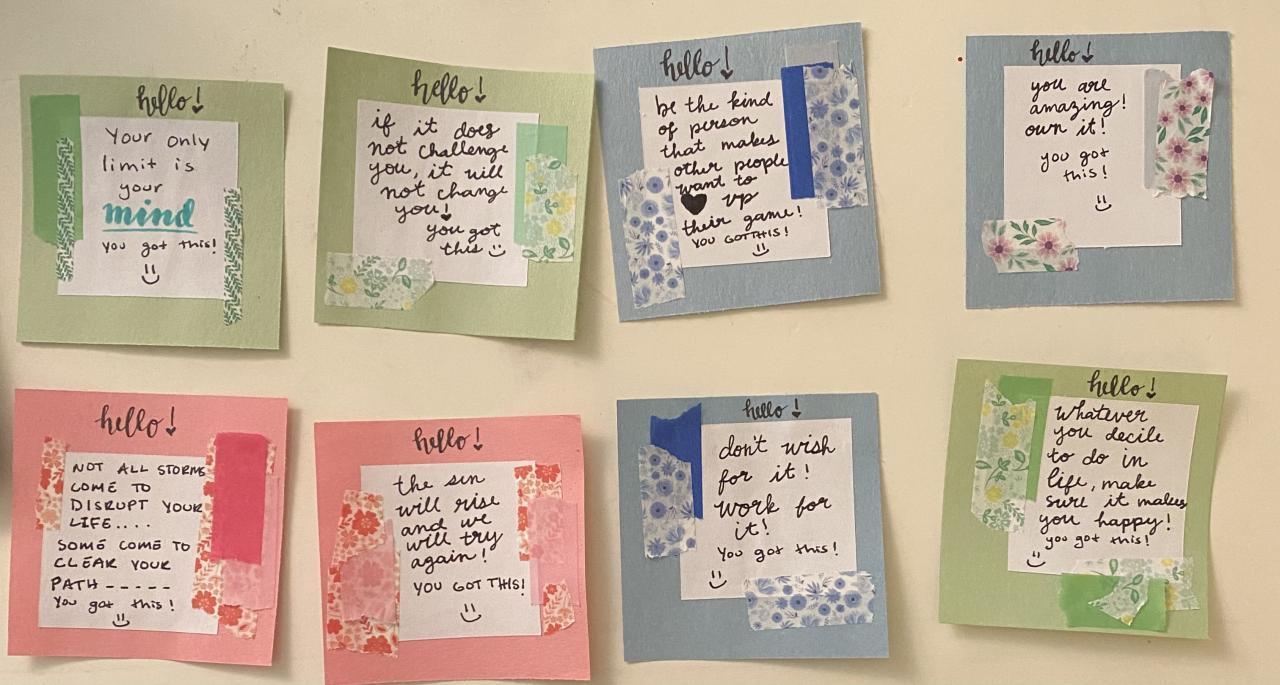 hello!
Your only
limit is
your
mind
You got this!
hello!
if it does
not challenge
you, it will
not change
you!
you got
this
hello!
be the kind
of person
that makes
other people
want to
up
their game!
YOU GOT THIS!
hello!
you are
amazing!
own it!
you got
this!
hello!
NOT ALL STORMS
COME TO
DISRUPT YOUR
LIFE....
SOME COME TO
CLEAR YOUR
PATH -----
You got this!
hello!
the sun
will rise
and we
will try
again!
YOU GOT THIS!
hello!
don't wish
for it!
work for
it!
You got this!
hello!
Whatever
you decide
to do in
life, make
sure it makes
you happy!
you got this!